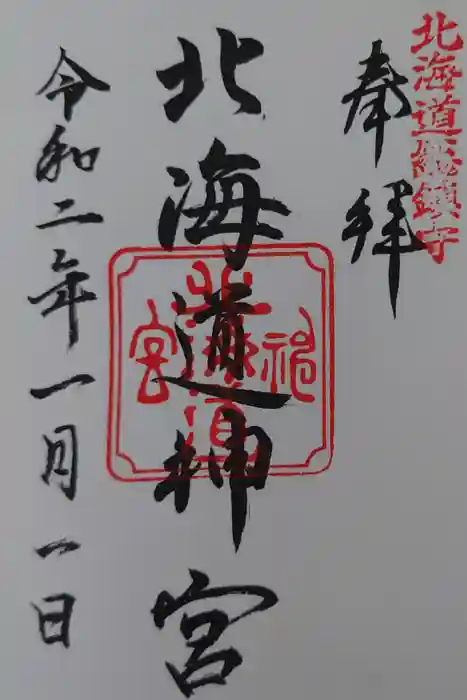 北海道総鎮守
奉拝
北海道神宮
北海道神宮
令和二年一月一日